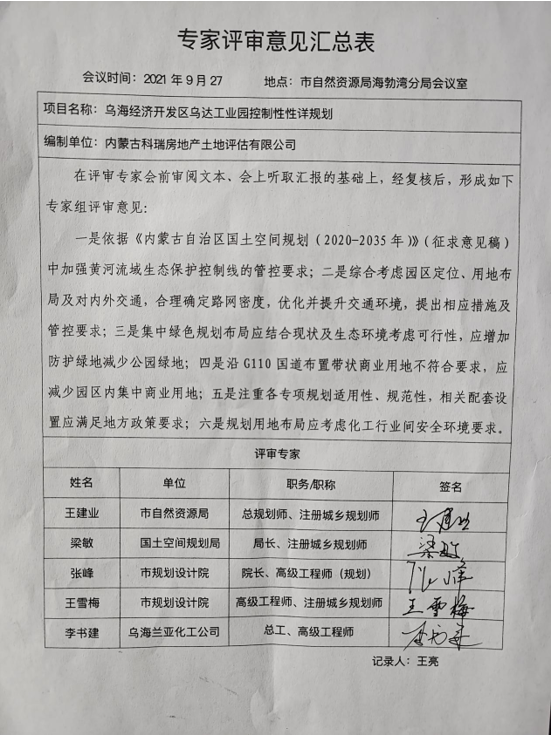 专家评审意见汇总表
会议时间：2021 年 9 月 27 地点：市自然资源局海勃湾分局会议室
项目名称：乌海经济开发区乌达工业园控制性性详规划
编制单位：内蒙古科瑞房地产土地评估有限公司
在评审专家会前审阅文本、会上听取汇报的基础上，经复核后，形成如下
专家组评审意见：
一是依据《内蒙古自治区国土空间规划（2020-2035 年）》（征求意见稿）
中加强黄河流域生态保护控制线的管控要求；二是综合考虑园区定位、用地布
局及对内外交通，合理确定路网密度，优化并提升交通环境，提出相应措施及
管控要求；三是集中绿色规划布局应结合现状及生态环境考虑可行性，应增加
防护绿地减少公园绿地；四是沿 G110 国道布置带状商业用地不符合要求，应
减少园区内集中商业用地；五是注重各专项规划适用性、规范性，相关配套设
置应满足地方政策要求；六是规划用地布局应考虑化工行业间安全环境要求。
评审专家
姓名 单位 职务/职称 签名
王建业 市自然资源局 总规划师、注册城乡规划师 王建业
梁敏 国土空间规划局 局长、注册城乡规划师 梁敏
张峰 市规划设计院 院长、高级工程师（规划） 张峰
王雪梅 市规划设计院 高级工程师、注册城乡规划师 王雪梅
李书建 乌海兰亚化工公司 总工、高级工程师 李书建
记录人：王亮